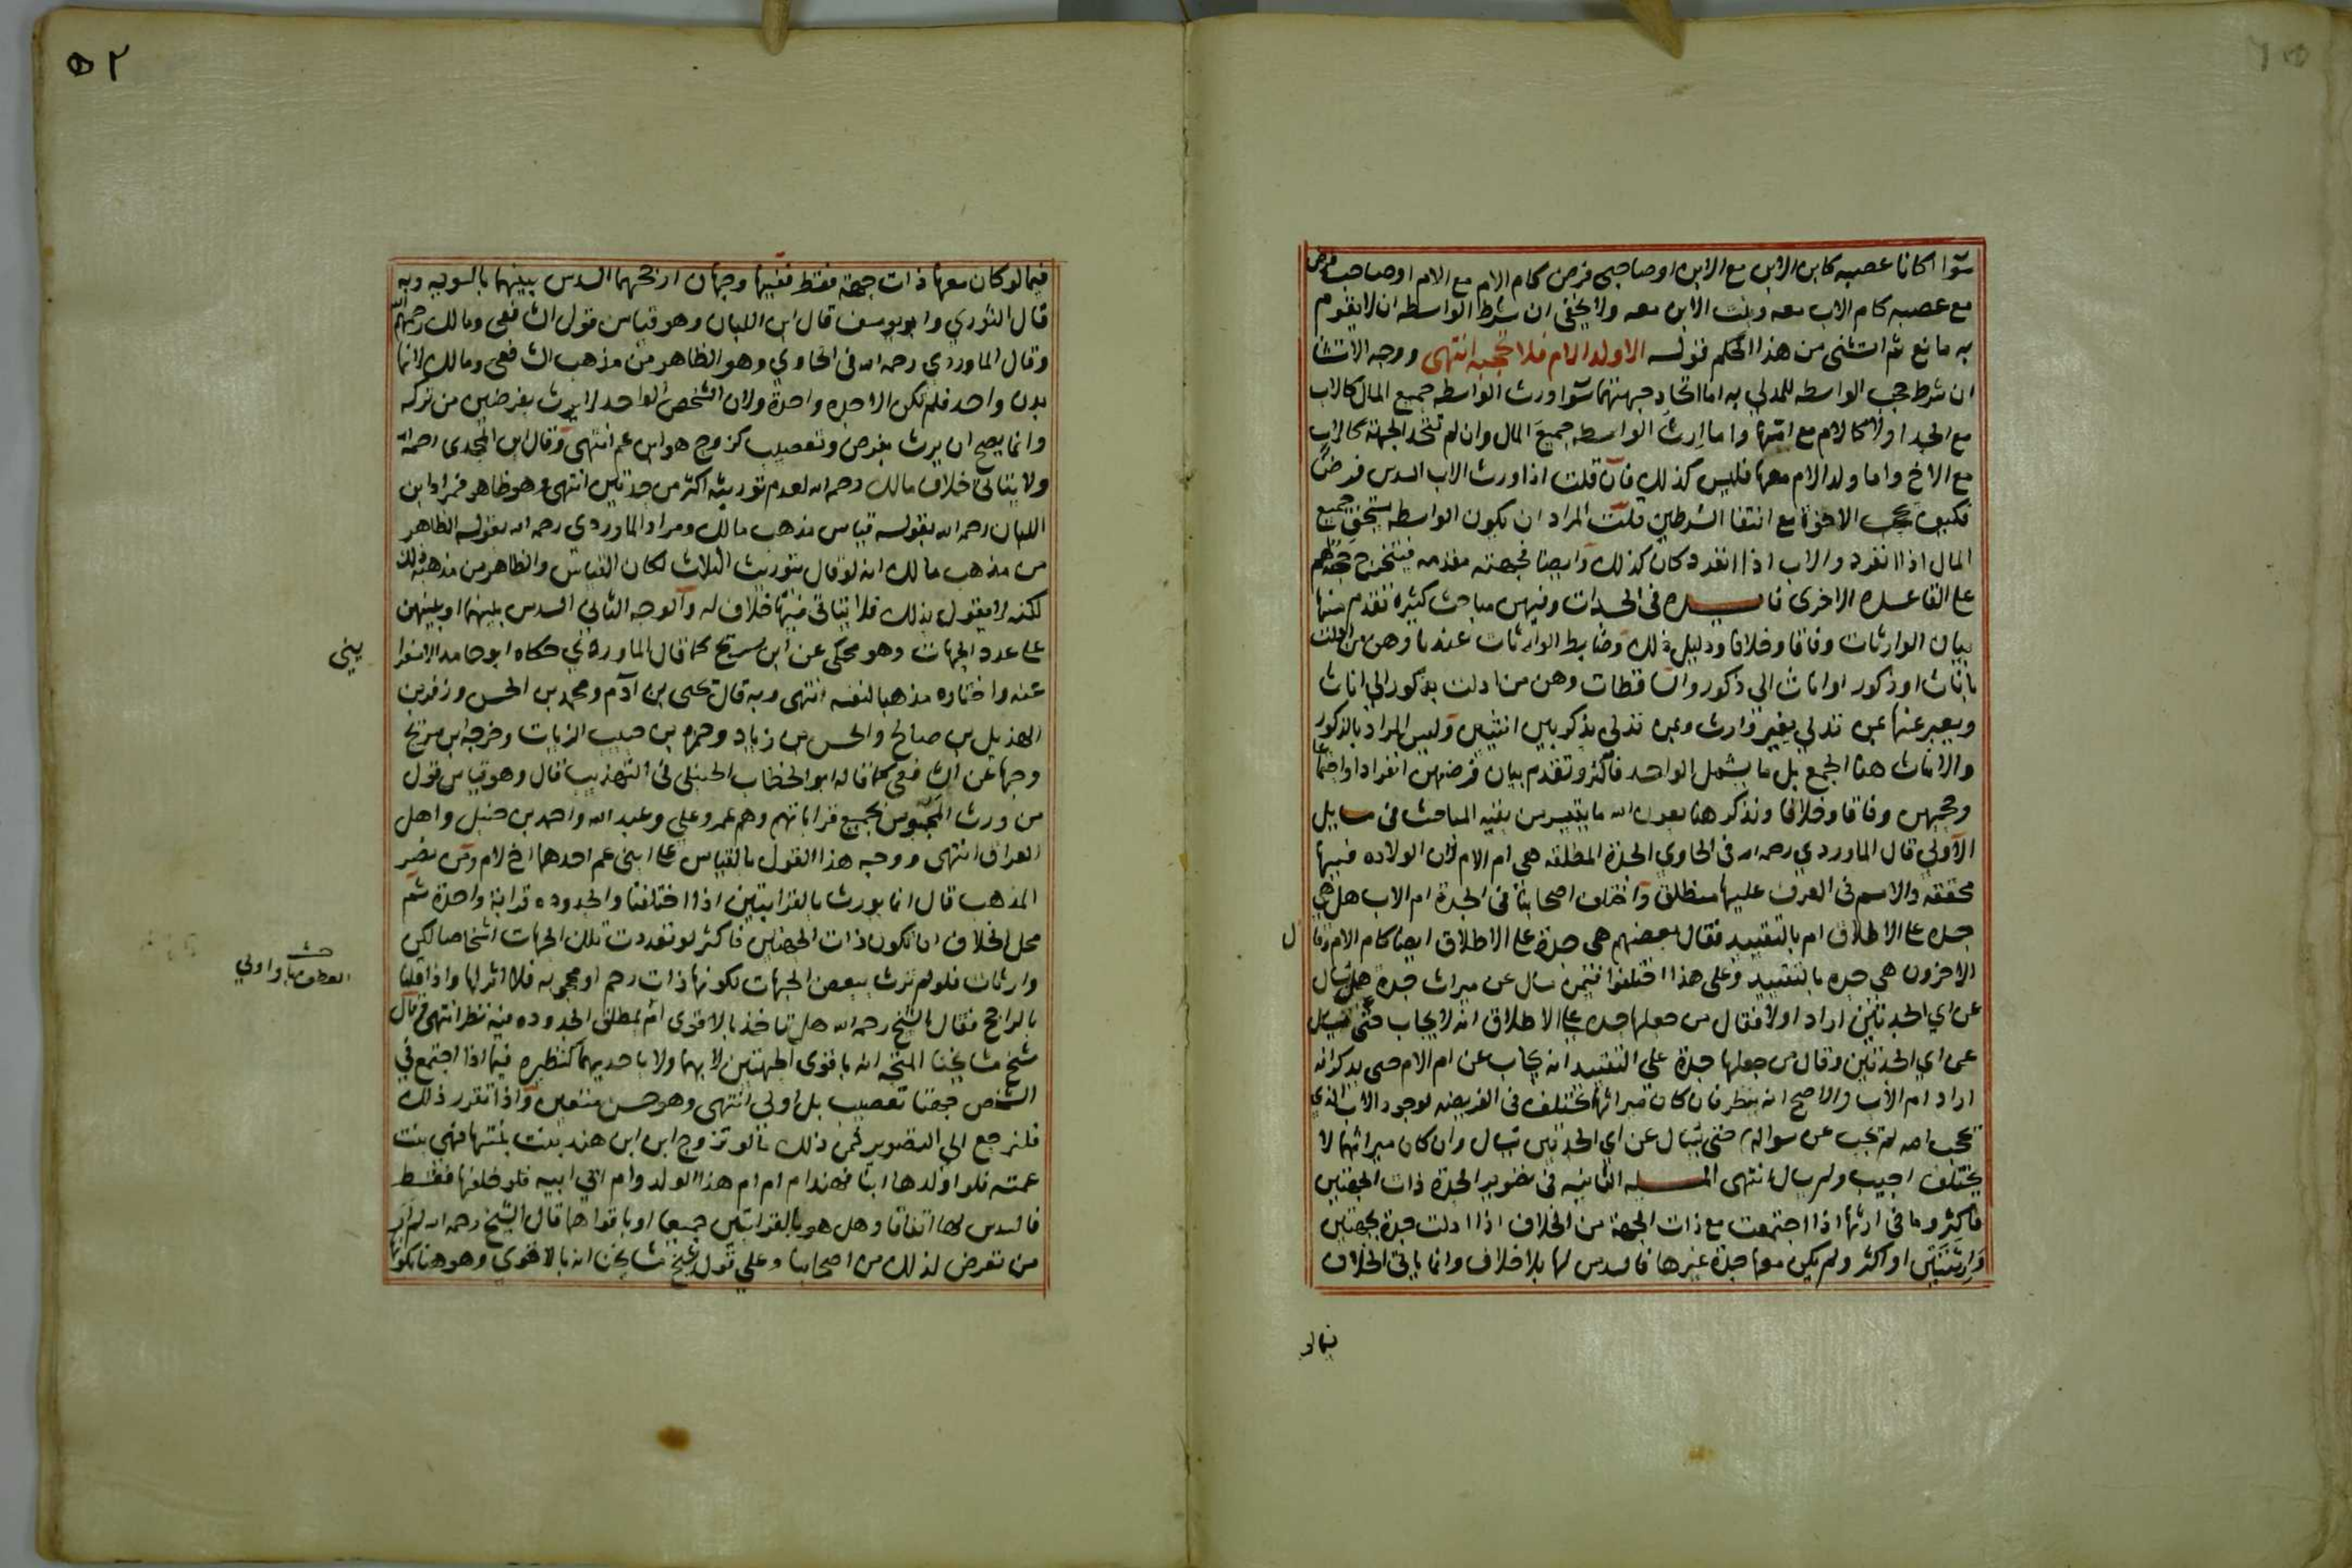 سوآا كانا عصبه كابن الابن مع الابن او صاحبي فرض كام الام مع الام او صاحب فرض
مع عصبه كام الاب معه وبنت الابن معه ولا يخفى ان شرط الواسطه ان لا يقوم
به مانع ثم استثنى من هذا الحكم قوله الا ولد الام فلا تحجبه انتهى ووجه الاستثنا
ان شرط حجب الواسطه للمدلي به اما اتحاد جهتهما سوآا ورث الواسطه جميع المال كالاب
مع الجد او لا كالام مع امها واما ارث الواسطه جميع المال وان لم تتحد الجهة كالاب
مع الاخ واما ولد الام معها فليس كذلك فان قلت اذا ورث الاب السدس فرضا
فكيف يحجب الاخوة مع انتفا الشرطين قلت المراد ان يكون الواسطه يستحق جميع
المال اذا انفرد والاب اذا انفرد كان كذلك وايضا فجهته مقدمه فيتخرج حجبهم
على القاعده الاخرى فايده في الجدات وفيهن مباحث كثيره تقدم منها
بيان الوارثات وفاقا وخلافا ودليل ذلك وضابط الوارثات عندنا وهن من ادلت
باناث او ذكور او اناث الى ذكور والساقطات وهن من ادلت بذكور الى اناث
ويعبر عنها بمن تدلي بغير وارث وبمن تدلي بذكر بين انثيين وليس المراد بالذكور
والاناث هنا الجمع بل ما يشمل الواحد فاكثر وتقدم بيان فرضهن انفرادا واجتماعا
وحجبهن وفاقا وخلافا ونذكر هنا بعون الله ما يتيسر من بقيه المباحث في مسايل
الآولي قال الماوردي رحمه الله في الحاوي الجدة المطلقه هي ام الام لان الولاده فيها
محققه والاسم في العرف عليها منطلق واختلف اصحابنا في الجدة ام الاب هل هي
جده على الاطلاق ام بالتقييد فقال بعضهم هي جدة على الاطلاق ايضا كام الام وقا
ل
الاخرون هي جده بالتقييد وعلى هذا اختلفوا فيمن سال عن ميراث جدة هل يسال
عن اي الجدتين اراد او لا فقال من جعلها جده على الاطلاق انه لا يجاب حتى يسال
عن اي الجدتين وقال من جعلها جدة على التقييد انه يجاب عن ام الام حتى يذكر انه
اراد ام الاب والاصح انه ينظر فان كان ميراثها يختلف في الفريضه لوجود الاب الذي
يحجب امه لم يجب عن سواله حتى يسال عن اي الجدتين تسال وان كان ميراثهما لا
يختلف اجيب ولم يسال انتهى المسله الثانيه في تصوير الجدة ذات الجهتين
فاكثر وما في ارثها اذا اجتمعت مع ذات الجهة من الخلاف اذا ادلت جدة بجهتين
وارثتين او اكثر ولم يكن معها جدة غيرها فالسدس لها بلا خلاف وانما ياتي الخلاف
فيما لو
٥٢
فيما لو كان معها ذات جهة فقط ففيها وجهان ارجحهما السدس بينهما بالسويه وبه
قال الثوري وابو يوسف قال ابن اللبان وهو قياس قول الشافعي ومالك رحمهم الله
وقال الماوردي رحمه الله في الحاوي وهو الظاهر من مذهب الشافعي ومالك لانها
بدن واحد فلم تكن الا جده واحدة ولان الشخص الواحد لا يرث بفرضين من تركه
وانما يصح ان يرث بفرض وتعصيب كزوج هو ابن عم انتهى وقال ابن المجدى رحمه الله
ولا يتاتى خلاف مالك رحمه الله لعدم توريثه اكثر من جدتين انتهى وهو ظاهر فمراد ابن
اللبان رحمه الله بقوله قياس مذهب مالك ومراد الماوردي رحمه الله بقوله الظاهر
من مذهب مالك انه لو قال بتوريث الثلاث لكان القياس والظاهر من مذهبه ذلك
لكنه لا يقول بذلك فلا يتاتى فيها خلاف له والوجه الثاني السدس بينهما او بينهن
على عدد الجهات وهو محكي عن ابن سريج كما قال الماوردي حكاه ابو حامد الاسفرا
ييني
عنه واختاره مذهبا لنفسه انتهى وبه قال يحيى بن آدم ومحمد بن الحسن وزفر بن
الهذيل بن صالح والحسن بن زياد وحمزه بن حبيب الزيات وخرجه ابن سريج
وجها عن الشافعي كما قاله ابو الخطاب الحنبلي في التهذيب قال وهو قياس قول
من ورث المجوس بجميع قراباتهم وهم عمر وعلي وعبد الله واحمد بن حنبل واهل
العراق انتهى ووجه هذا القول بالقياس على ابني عم احدهما اخ لام ومن نصر
المذهب قال انما يورث بالقرابتين اذا اختلفتا والجدوده قرابة واحدة ثم
محل الخلاف ان تكون ذات الجهتين فاكثر لو تعددت تلك الجهات اشخاصا لكن
وارثات فلو لم ترث ببعض الجهات لكونها ذات رحم او محجوبه فلا اثر لها واذا قلنا
العطف بالواو اولي
بالراجح فقال الشيخ رحمه الله هل تاخذ بالاقوى ام بمطلق الجدوده فيه نظر انتهى قال
شيخ مشايخنا المتجه انه باقوى الجهتين لا بهما ولا باحديهما كنظيره فيما اذا اجتمع في
الشخص جهتا تعصيب بل اولى انتهى وهو حسن متعين واذا تقرر ذلك
فلنرجع الي التصوير فمن ذلك ما لو تزوج ابن ابن هند بنت بنتها فهي بنت
عمته فلو اولدها ابنا فهند ام ام ام هذا الولد وام ابي ابيه فلو خلفها فقط
فالسدس لها اتفاقا وهل هو بالقرابتين جميعا او باقواهما قال الشيخ رحمه الله لم ار
من تعرض لذلك من اصحابنا وعلي قول شيخ مشايخنا انه بالاقوي وهو هنا كونها